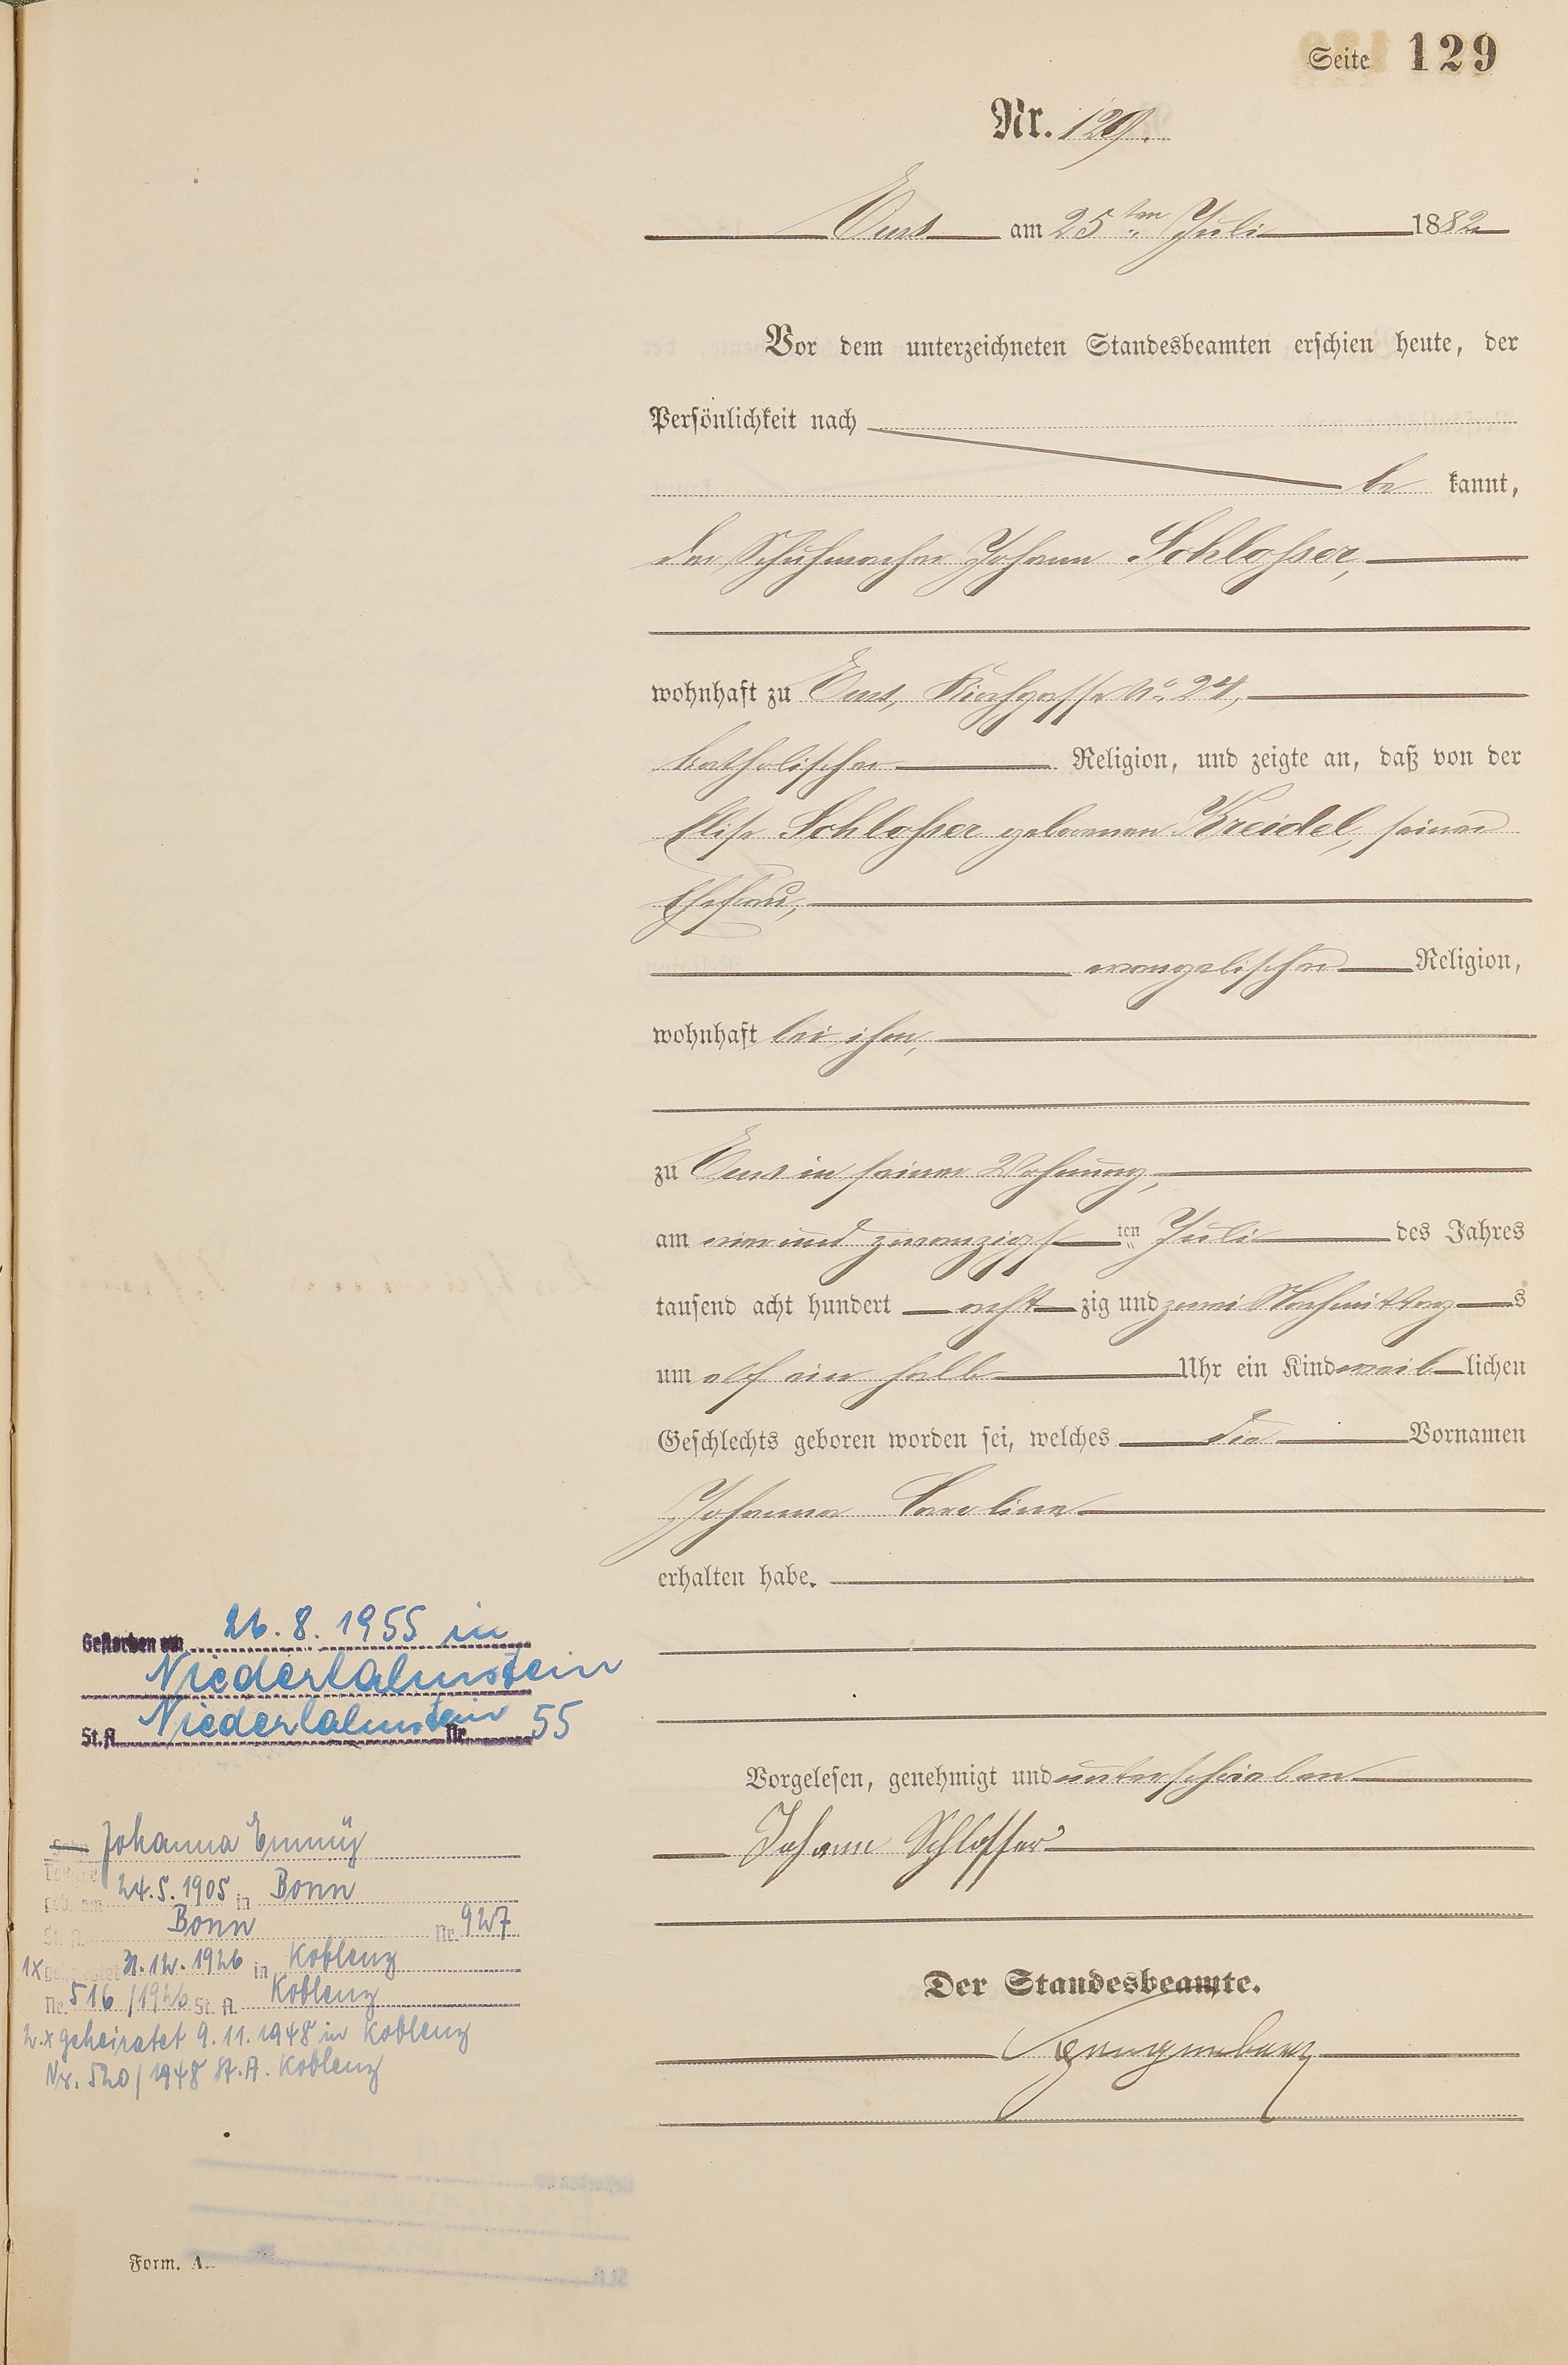 Seite 129
Nr. 129.
Ems am 25ten Juli 1882
Vor dem unterzeichneten Standesbeamten erschien heute, der
Persönlichkeit nach
be kannt,
der Schuhmacher Johann Schlosser,
wohnhaft zu Ems, Kirchgasse No. 24,
katholischer Religion, und zeigte an, daß von der
Elise Schlosser geborenen Kreidel, seiner
Ehefrau,
evangelischer Religion,
wohnhaft bei ihm,
zu Ems in seiner Wohnung,
am vier und zwanzigsten Juli des Jahres
tausend acht hundert achtzig und zwei Nachmittags
um elf ein halb Uhr ein Kind weiblichen
Geschlechts geboren worden sei, welches die Vornamen
Johanna Carolina
erhalten habe.
Vorgelesen, genehmigt und unterschrieben
Johann Schlosser
Der Standesbeamte.
Gestorben am 26.8.1955 in
Niederlahnstein
St.A. Niederlahnstein Nr. 55
Sohn Johanna Emmy
Tochter
geb. am 24.5.1905 in Bonn
St. A. Bonn Nr. 927
1x geheiratet 31.12.1926 in Koblenz
Nr. 516/1926 St. A. Koblenz
2.x geheiratet 9.11.1948 in Koblenz
Nr. 520/1948 St.A. Koblenz
Form. A.